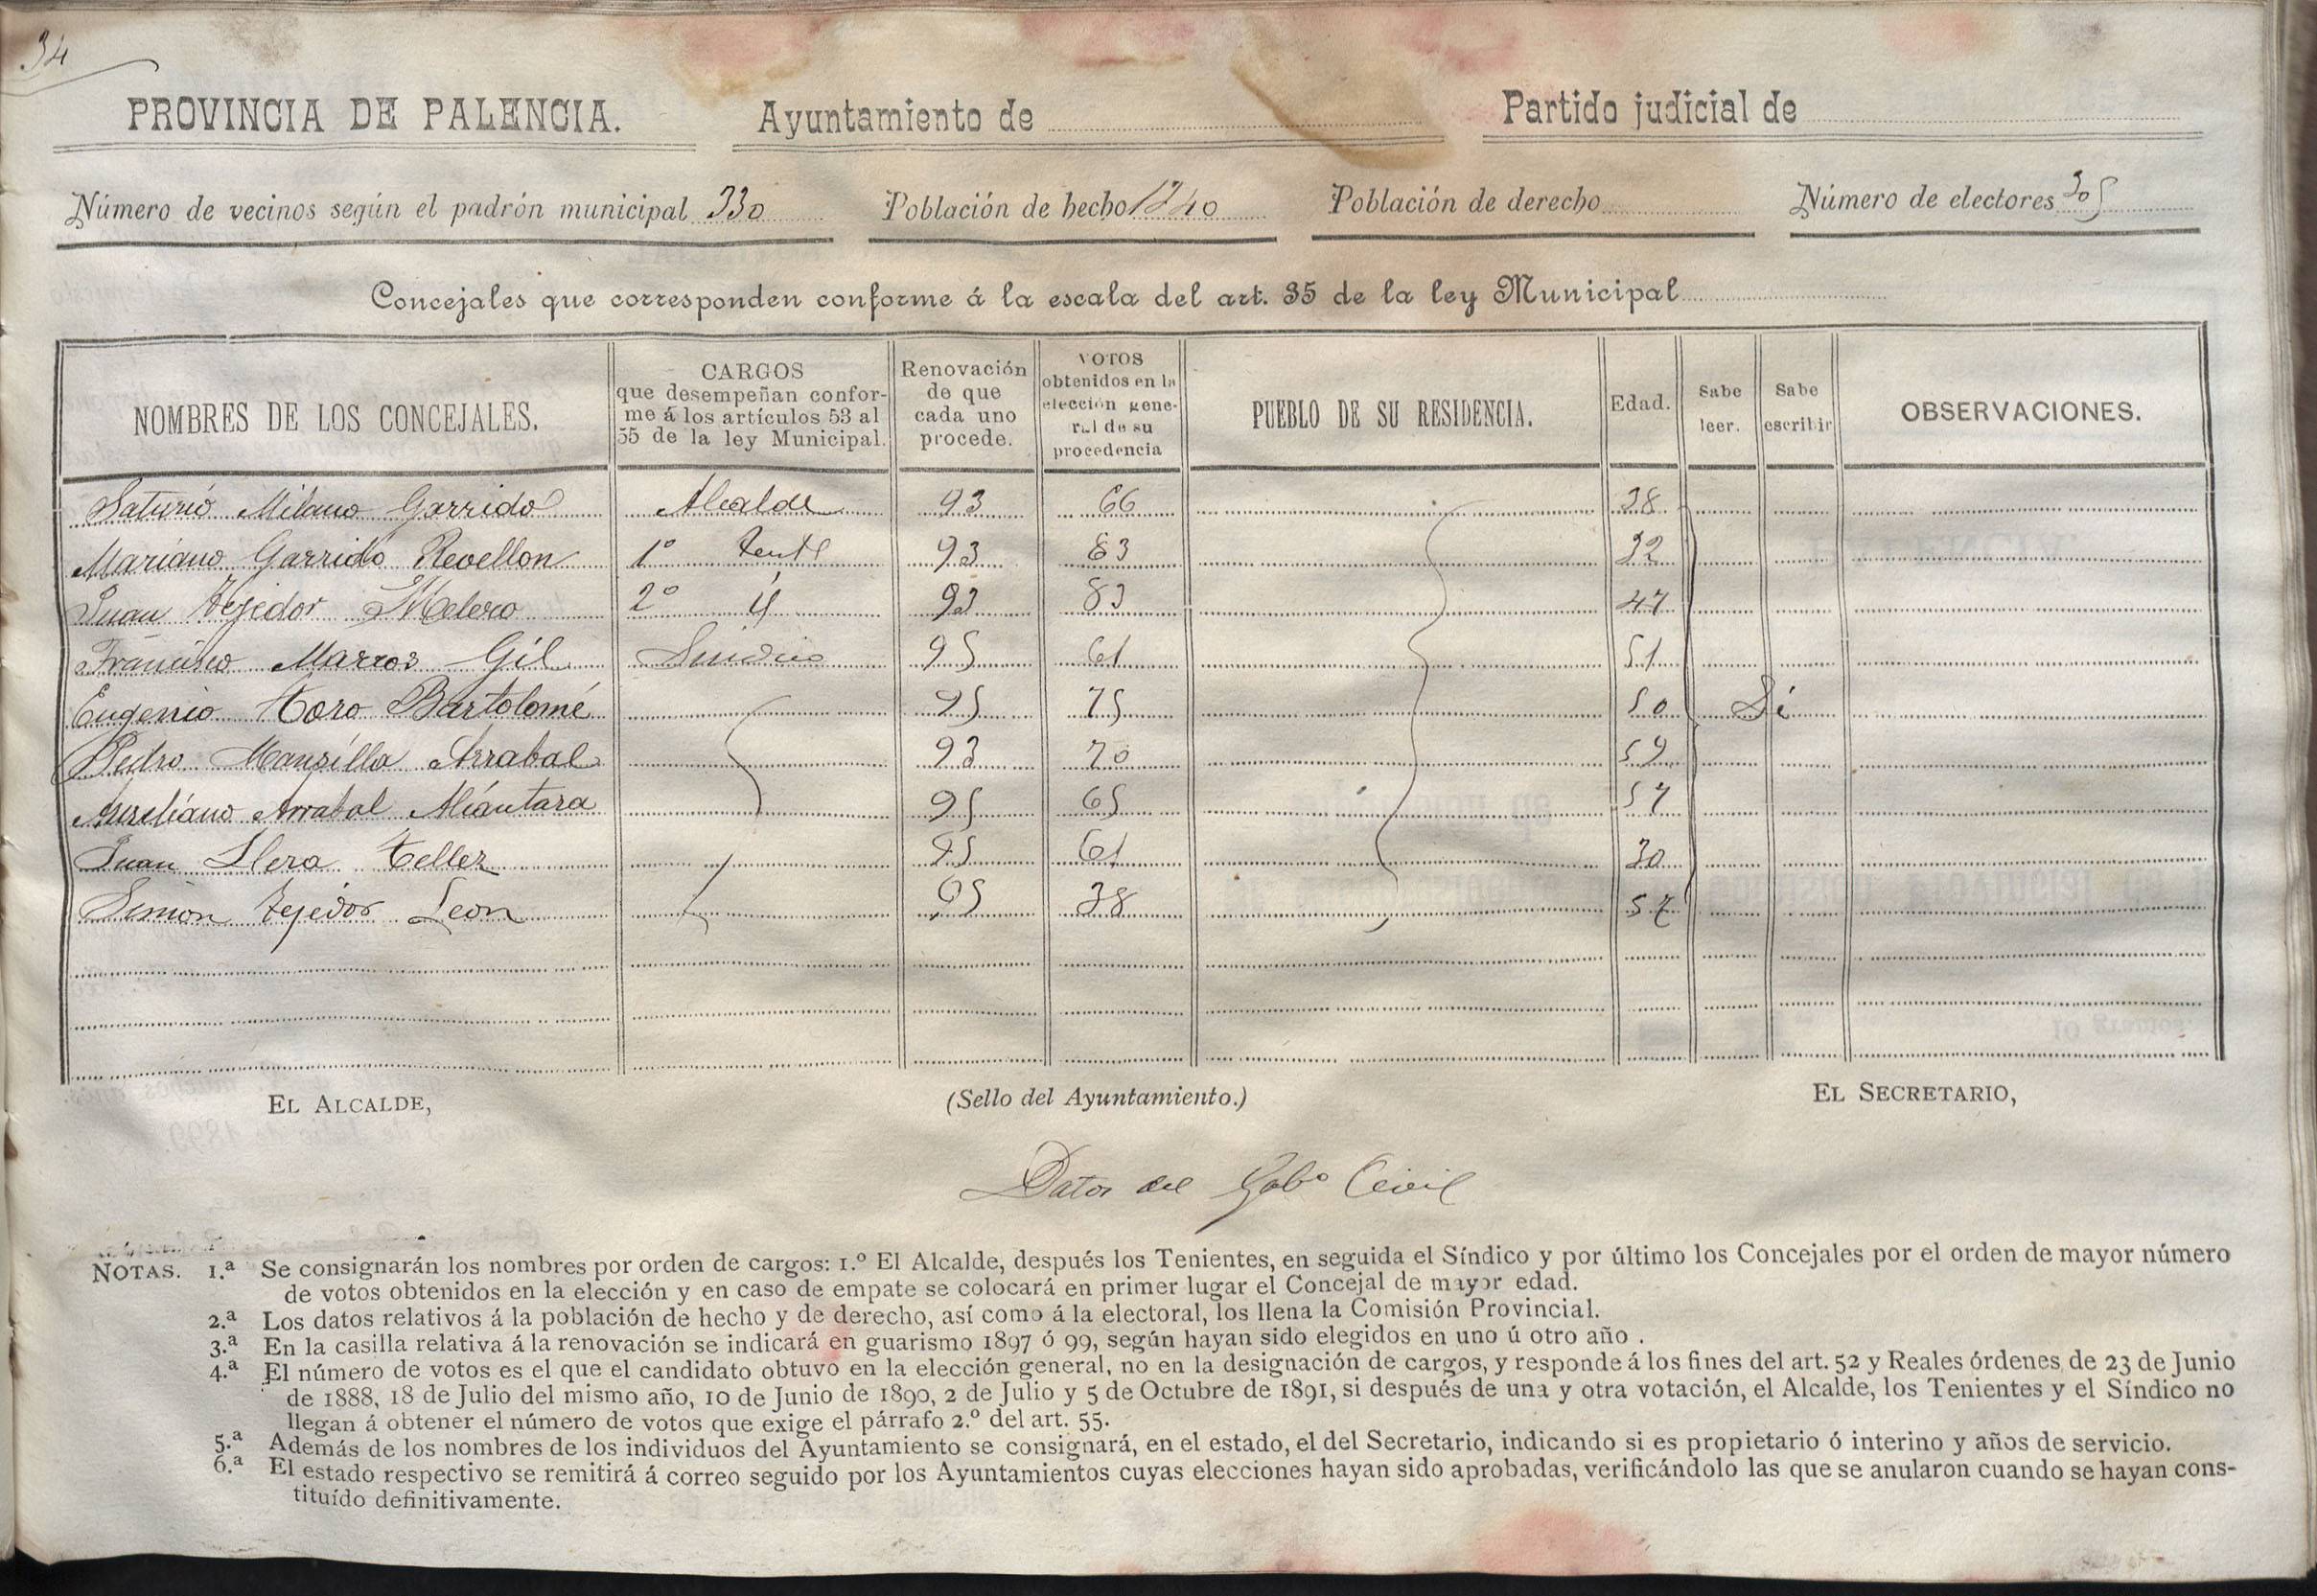 34
PROVINCIA DE PALENCIA. Ayuntamiento de Partido judicial de
Número de vecinos según el padrón municipal 330 Población de hecho 1240 Población de derecho Número de electores 305
Concejales que corresponden conforme á la escala del art. 35 de la ley Municipal
NOMBRES DE LOS CONCEJALES. CARGOS que desempeñan conforme á los artículos 53 al 55 de la ley Municipal. Renovación de que cada uno procede. VOTOS obtenidos en la elección general de su procedencia PUEBLO DE SU RESIDENCIA. Edad. Sabe leer. Sabe escribir OBSERVACIONES.
Saturio Milano Garrido Alcalde 93 66 38
Mariano Garrido Revellon 1º tente 93 83 32
Juan tejedor Melero 2º id 93 83 47
Francisco Marcos Gil Sindico 95 61 51
Eugenio toro Bartolomé 95 75 50 Si
Pedro Mansilla Arrabal 93 70 59
Aureliano Arrabal Alcántara 95 65 57
Juan Llera tellez 95 61 30
Simon tejedor Leon 95 38 57
EL ALCALDE, (Sello del Ayuntamiento.) EL SECRETARIO,
Datos del Gobº Civil
NOTAS. 1.ª Se consignarán los nombres por orden de cargos: 1.º El Alcalde, después los Tenientes, en seguida el Síndico y por último los Concejales por el orden de mayor número
de votos obtenidos en la elección y en caso de empate se colocará en primer lugar el Concejal de mayor edad.
2.ª Los datos relativos á la población de hecho y de derecho, así como á la electoral, los llena la Comisión Provincial.
3.ª En la casilla relativa á la renovación se indicará en guarismo 1897 ó 99, según hayan sido elegidos en uno ú otro año .
4.ª El número de votos es el que el candidato obtuvo en la elección general, no en la designación de cargos, y responde á los fines del art. 52 y Reales órdenes de 23 de Junio
de 1888, 18 de Julio del mismo año, 10 de Junio de 1890, 2 de Julio y 5 de Octubre de 1891, si después de una y otra votación, el Alcalde, los Tenientes y el Síndico no
llegan á obtener el número de votos que exige el párrafo 2.º del art. 55.
5.ª Además de los nombres de los individuos del Ayuntamiento se consignará, en el estado, el del Secretario, indicando si es propietario ó interino y años de servicio.
6.ª El estado respectivo se remitirá á correo seguido por los Ayuntamientos cuyas elecciones hayan sido aprobadas, verificándolo las que se anularon cuando se hayan cons-
tituído definitivamente.